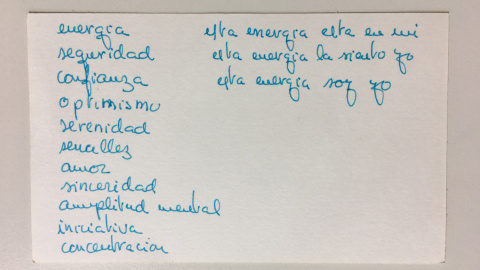 energia
seguridad
confianza
optimismo
serenidad
sencillez
amor
sinceridad
amplitud mental
iniciativa
concentracion
esta energia esta en mi
esta energia la siento yo
esta energia soy yo